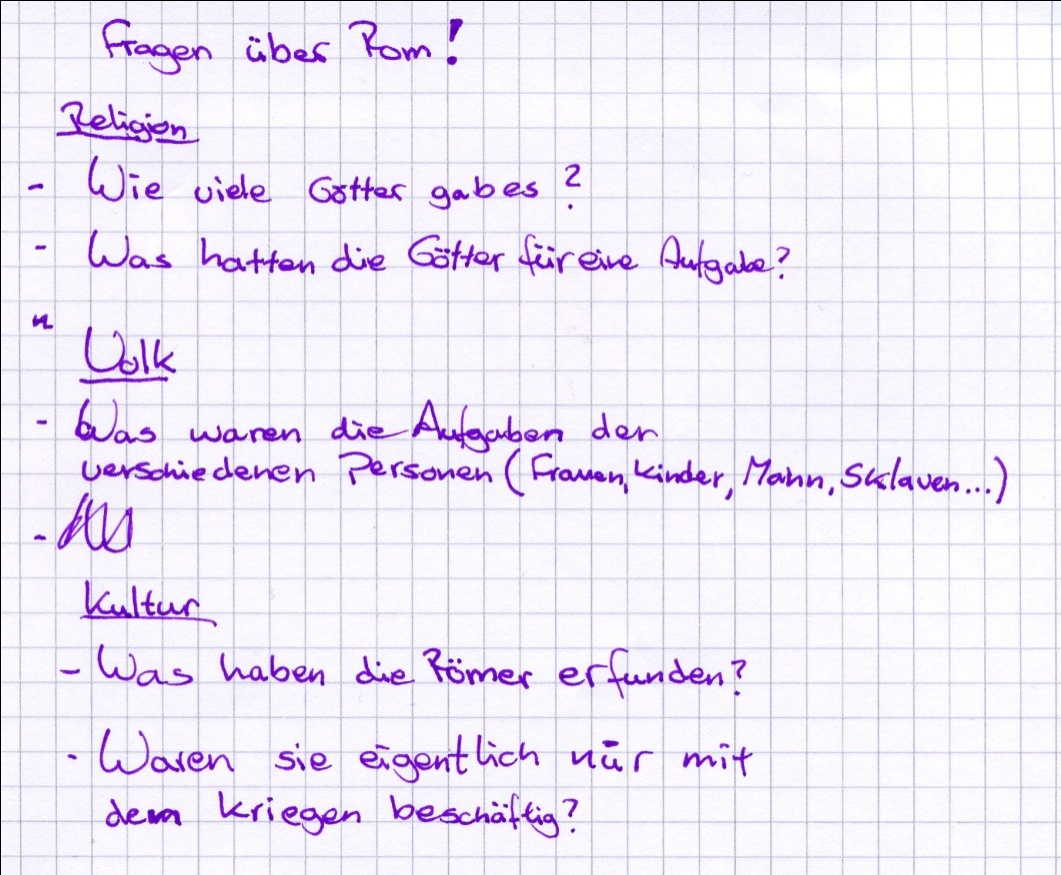 Fragen über Rom!
Religion
- Wie viele Götter gab es?
- Was hatten die Götter für eine Aufgabe?
Volk
- Was waren die Aufgaben der
verschiedenen Personen (Frauen, Kinder, Mann, Sklaven...)
-
Kultur
- Was haben die Römer erfunden?
- Waren sie eigentlich nur mit
dem kriegen beschäftig?